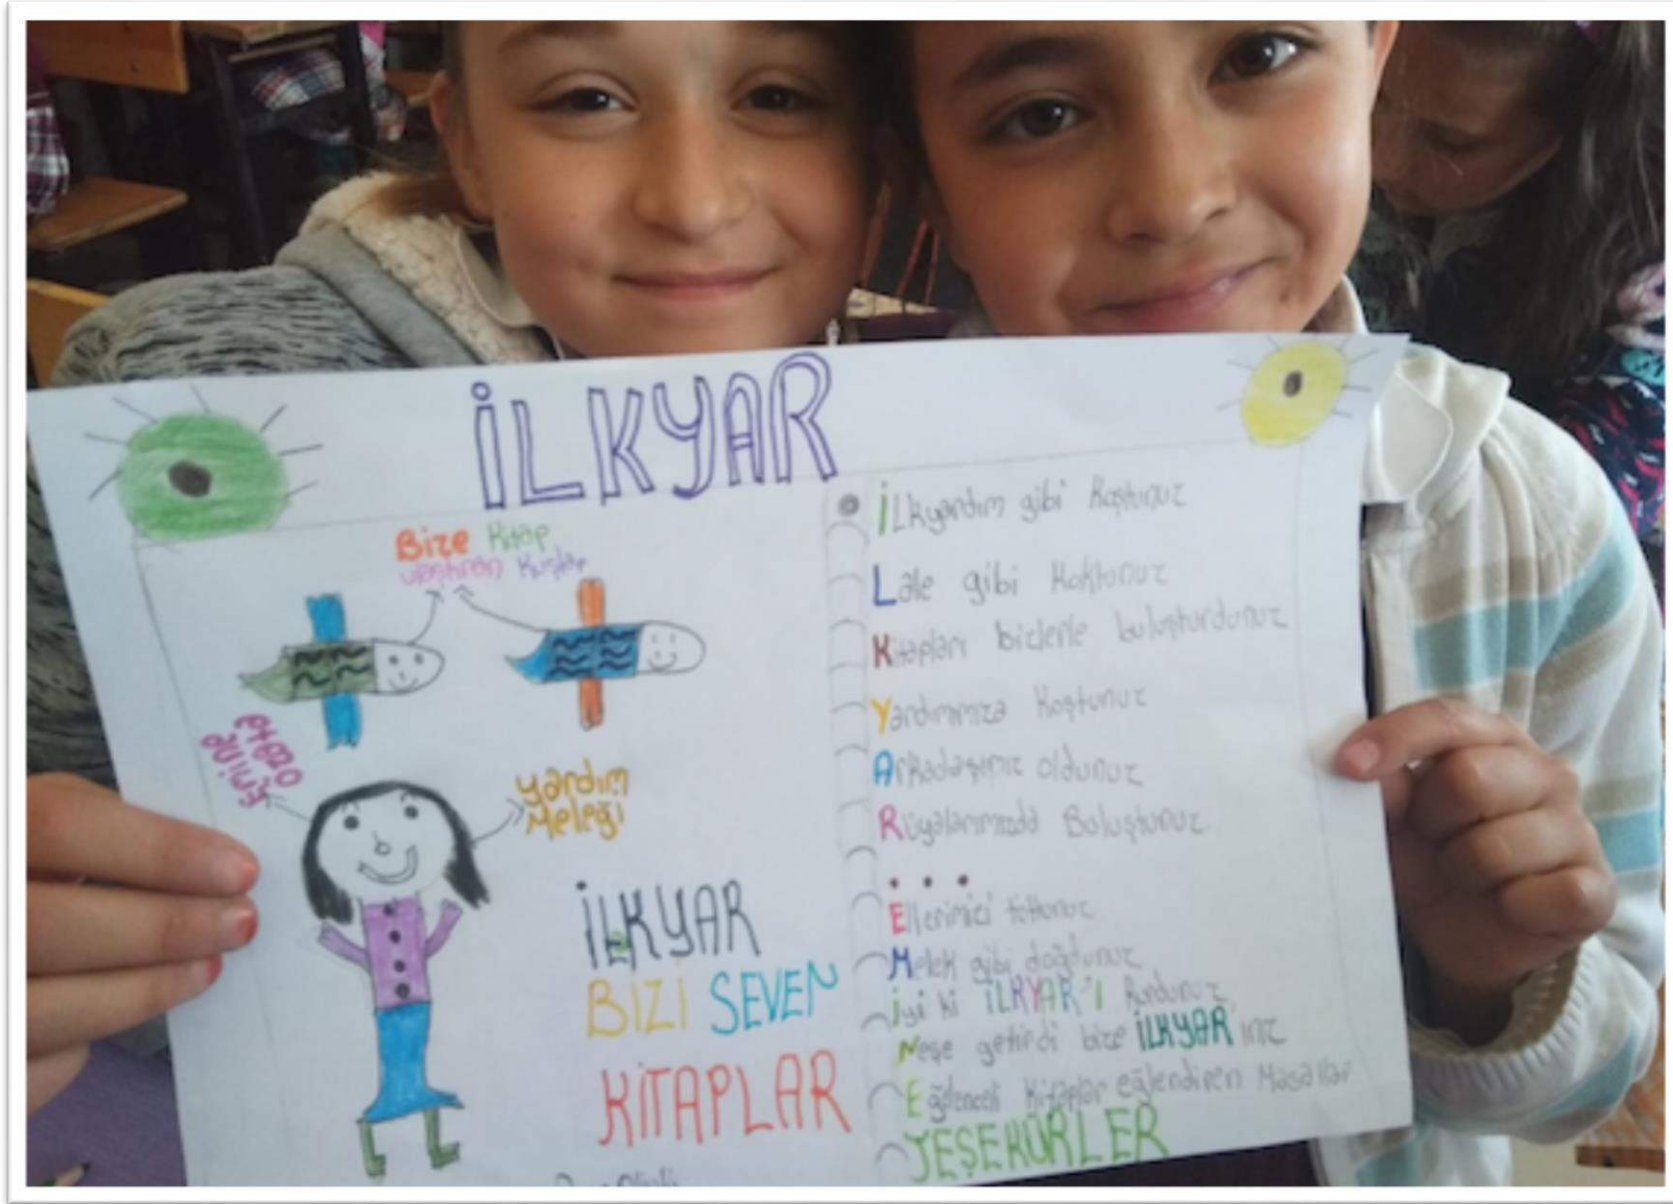 İLKYAR
Bize Kitap
ulaştıran Kuşlar
Yardım
Meleği
İLKYAR
BİZİ SEVEN
KİTAPLAR
İLkyardım gibi Koştunuz
Lale gibi Koktunuz
Kitapları bizlerle buluşturdunuz
Yardımımıza Koştunuz
Arkadaşımız oldunuz
Rüyalarımızda Buluştunuz
...
Ellerimizi tuttunuz
Melek gibi doğdunuz
İyi ki İLKYAR'I Kurdunuz
Neşe getirdi bize İLKYAR'ınız
Eğlenceli Kitaplar eğlendiren Masallar
TEŞEKÜRLER